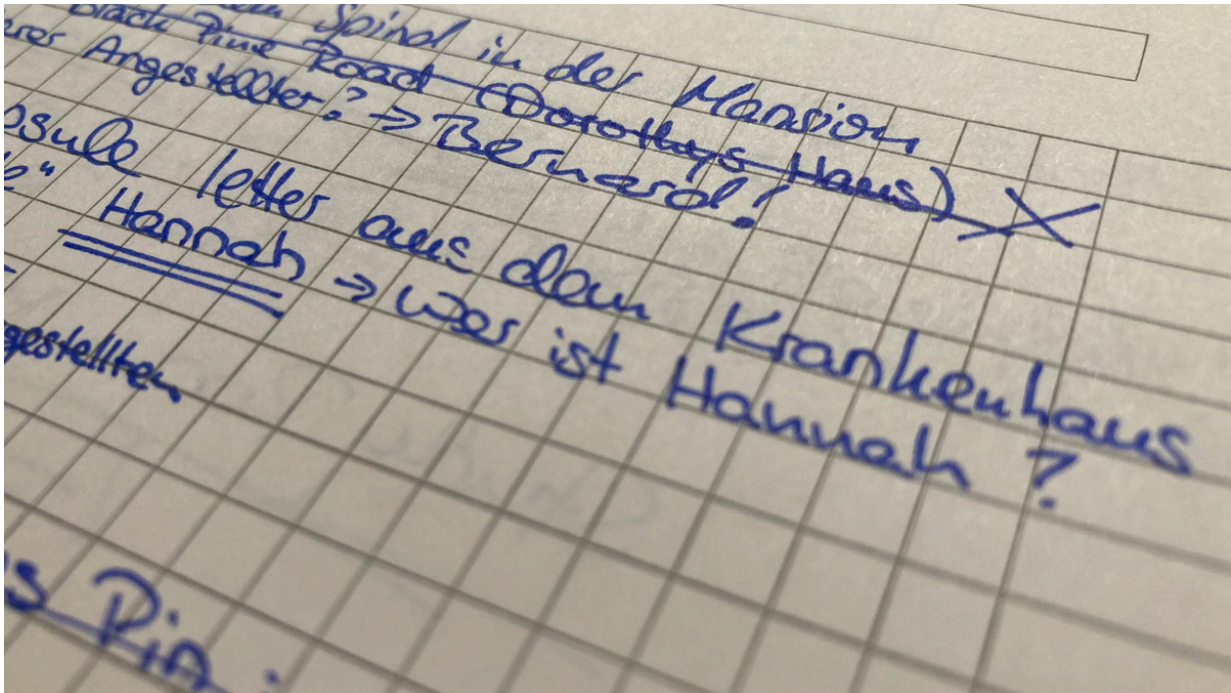 Spind in der Mansion
Black Pine Road (Dorothys Haus) X
Angestellter? → Bernard!
letter aus dem Krankenhaus
Hannah → wer ist Hannah?
gestellten